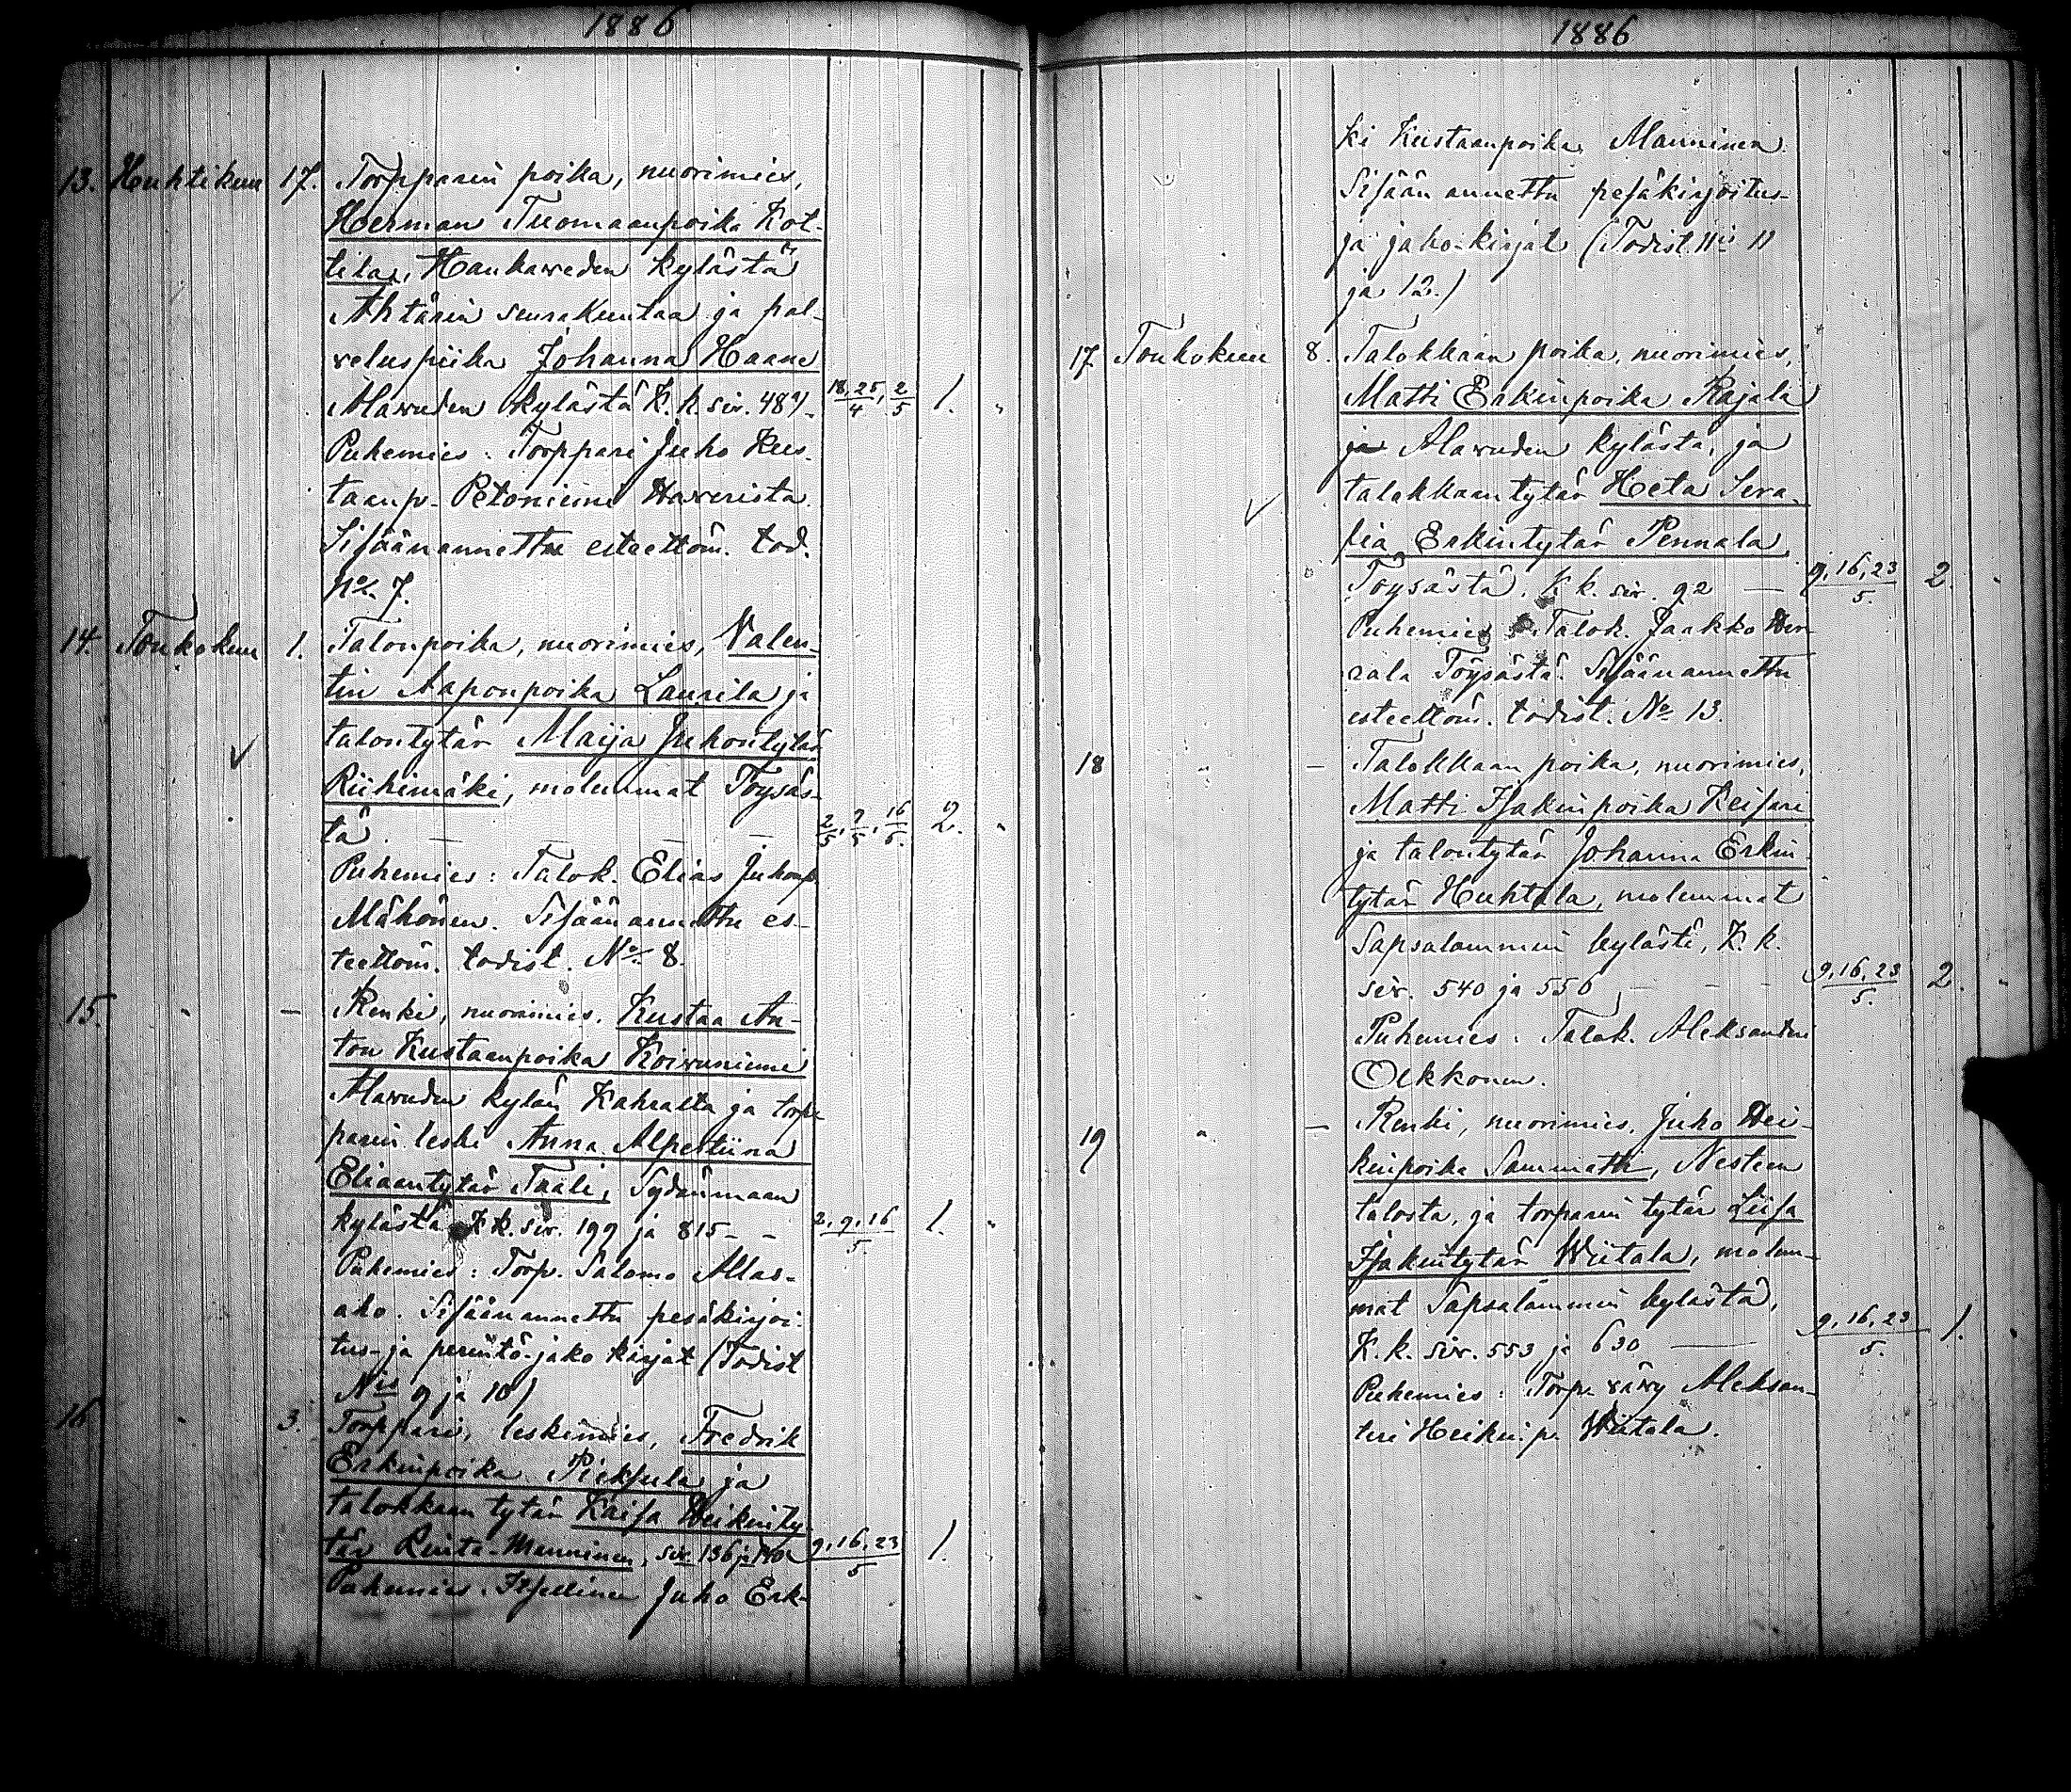 1886
13. Huhtikuu 17. Torpparin poika, nuorimies,
Herman Tuomaanpoika Kot-
tila, Haukaveden kylästä
Ahtärin seurakuntaa ja pal-
veluspiika Johanna Haane
Alavuden kylästä K. k. siv. 487. 18,25/4, 2/5 1. "
Puhemies: Torppari Juho Kus-
taanp. Petoniemi
Sisäänannettu esteettöm. tod.
No 7.
14. Toukokuu 1. Talonpoika, nuorimies, Valen-
tin Aaponpoika Laurila ja
talontytär Maija Juhontytär
Riihimäki, molemmat Töysäs-
tä. — — 2/5, 9/5, 16/5. 2. "
Puhemies: Talok. Elias Juhonp.
Mähönen. Sisäänannettu es-
teettöm. todist. No 8.
15. " — Renki, nuorimies, Kustaa An-
ton Kustaanpoika Koivuniemi
Alavuden kylän ja torp-
parin leski Anna Alpertiina
Eliaantytär Taali, Sydänmaan
kylästä K.k. siv. 199 ja 815 - - 2,9,16/5. 1. "
Puhemies: Torp. Salomo Allas-
aho. Sisäänannettu pesäkirjoi-
tus- ja perintö-jako kirjat (Todist
Nis 9 ja 10)
16 " 3. Torppari, leskimies, Fredrik
Erkinpoika Pieksula ja
talokkaan tytär Kaisa Heikinty-
tär Rinta-Manninen, siv. 136 ja 9,16,23/5 1.
Puhemies: Itsellinen Juho Erk-
1886
ki Kustaanpoika Manninen.
Sisään annettu pesäkirjoitus-
ja jako-kirjat (Todist. Nis 11
ja 12.)
17 Toukokuu 8. Talokkaan poika, nuorimies,
Matti Erkinpoika Rajala
ja Alavuden kylästä, ja
talokkaan tytär Heta Sera-
fia Erkintytär Pennala
Töysästä, K k. siv. 92 — 9,16,23/5. 2. "
Puhemies: Talok. Jaakko Her-
rala Töysästä. Sisäänannettu
esteettöm. todist. No 13.
18 " — Talokkaan poika, nuorimies,
Matti Isakinpoika Keisari
ja talontytär Johanna Erkin-
tytär Huhtala, molemmat
Sapsalammin kylästä, K. k.
siv. 540 ja 556 — - - 9,16,23/5. 2. "
Puhemies: Talok. Aleksanderi
Oekkonen.
19 " — Renki, nuorimies, Juho Hei-
kinpoika Sammatti, Nesteen
talosta, ja torparin tytär Liisa
Isakintytär Wiitala, molem-
mat Sapsalammin kylästä,
K. k. siv. 553 ja 630 — 9,16,23/5. 1. "
Puhemies: Torp. vävy Aleksan-
teri Heikin p. Wiitala.